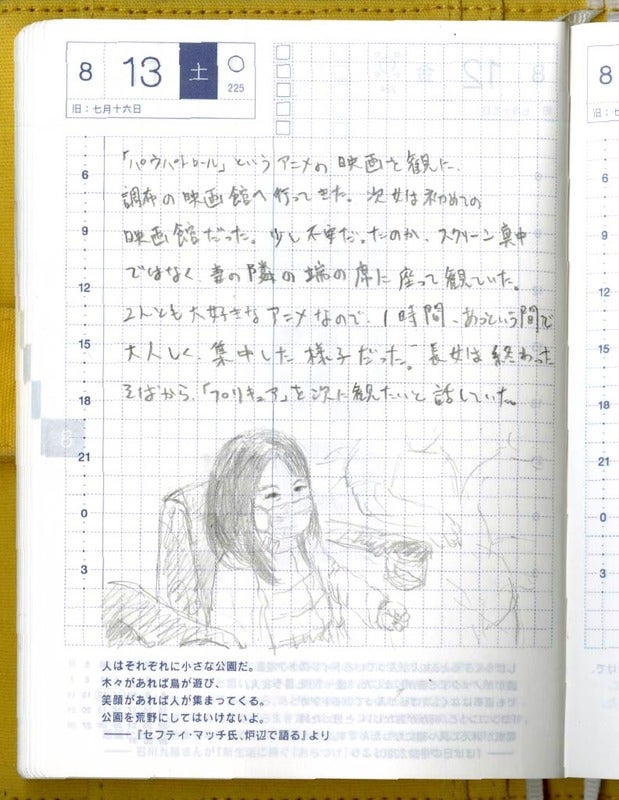 8 13 土
225
旧:七月十六日
「パウパトロール」というアニメの映画を観に、
調布の映画館へ行ってきた。次女は初めての
映画館だった。少し不安だったのか、スクリーン真中
ではなく、妻の隣の端の席に座って観ていた。
2人とも大好きなアニメなので、1時間、あっという間で
大人しく、集中した様子だった。長女は終わった
そばから、「プリキュア」を次に観たいと話していた。
6
9
12
15
18
21
0
3
8
人はそれぞれに小さな公園だ。
木々があれば鳥が遊び、
笑顔があれば人が集まってくる。
公園を荒野にしてはいけないよ。
——『セフティ・マッチ氏、炉辺で語る』より
8
旧:七
6
9
12
15
18
21
0
3